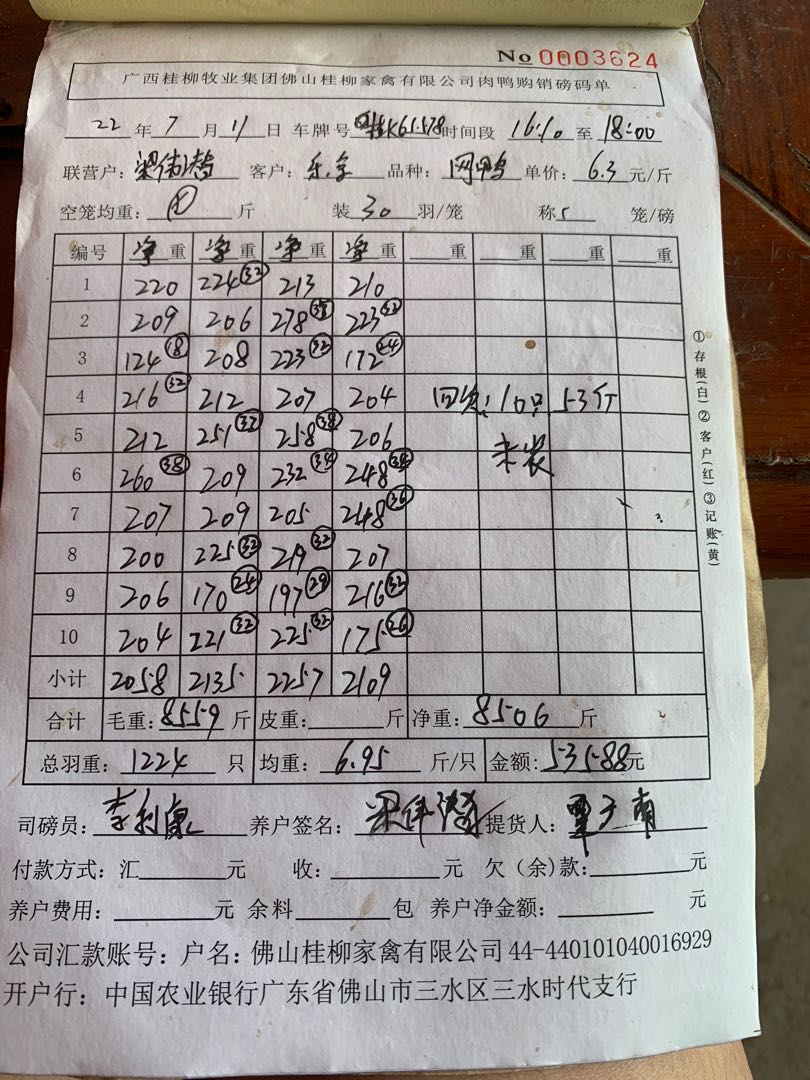 No 0003624
广西桂柳牧业集团佛山桂柳家禽有限公司肉鸭购销磅码单
22 年 7 月 11 日 车牌号 桂K61578 时间段 16:10 至 18:00
联营户: 梁伟潜 客户: 品种: 单价: 6.3 元/斤
空笼均重: 斤 装 30 羽/笼 称 5 笼/磅
编号 净 重 净 重 净 重 净 重 重 重 重 重
1 220 224 32 213 210
2 209 206 278 38 223 32
3 124 18 208 223 32 172 24
4 216 32 212 207 204 回资: 10只 53斤
5 212 251 37 258 38 206 未装
6 260 38 209 232 34 248 34
7 207 209 205 248 36
8 200 225 32 219 32 207
9 206 170 24 197 29 216 32
10 204 221 32 225 32 175 26
小计 2058 2135 2257 2109
合计 毛重: 8559 斤 皮重: 斤 净重: 8506 斤
总羽重: 1224 只 均重: 6.95 斤/只 金额: 53588 元
司磅员: 李利康 养户签名: 梁伟潜 提货人: 覃于南
付款方式: 汇 元 收: 元 欠(余)款: 元
养户费用: 元 余料 包 养户净金额: 元
公司汇款账号: 户名: 佛山桂柳家禽有限公司 44-440101040016929
开户行: 中国农业银行广东省佛山市三水区三水时代支行
①存根(白)②客户(红)③记账(黄)